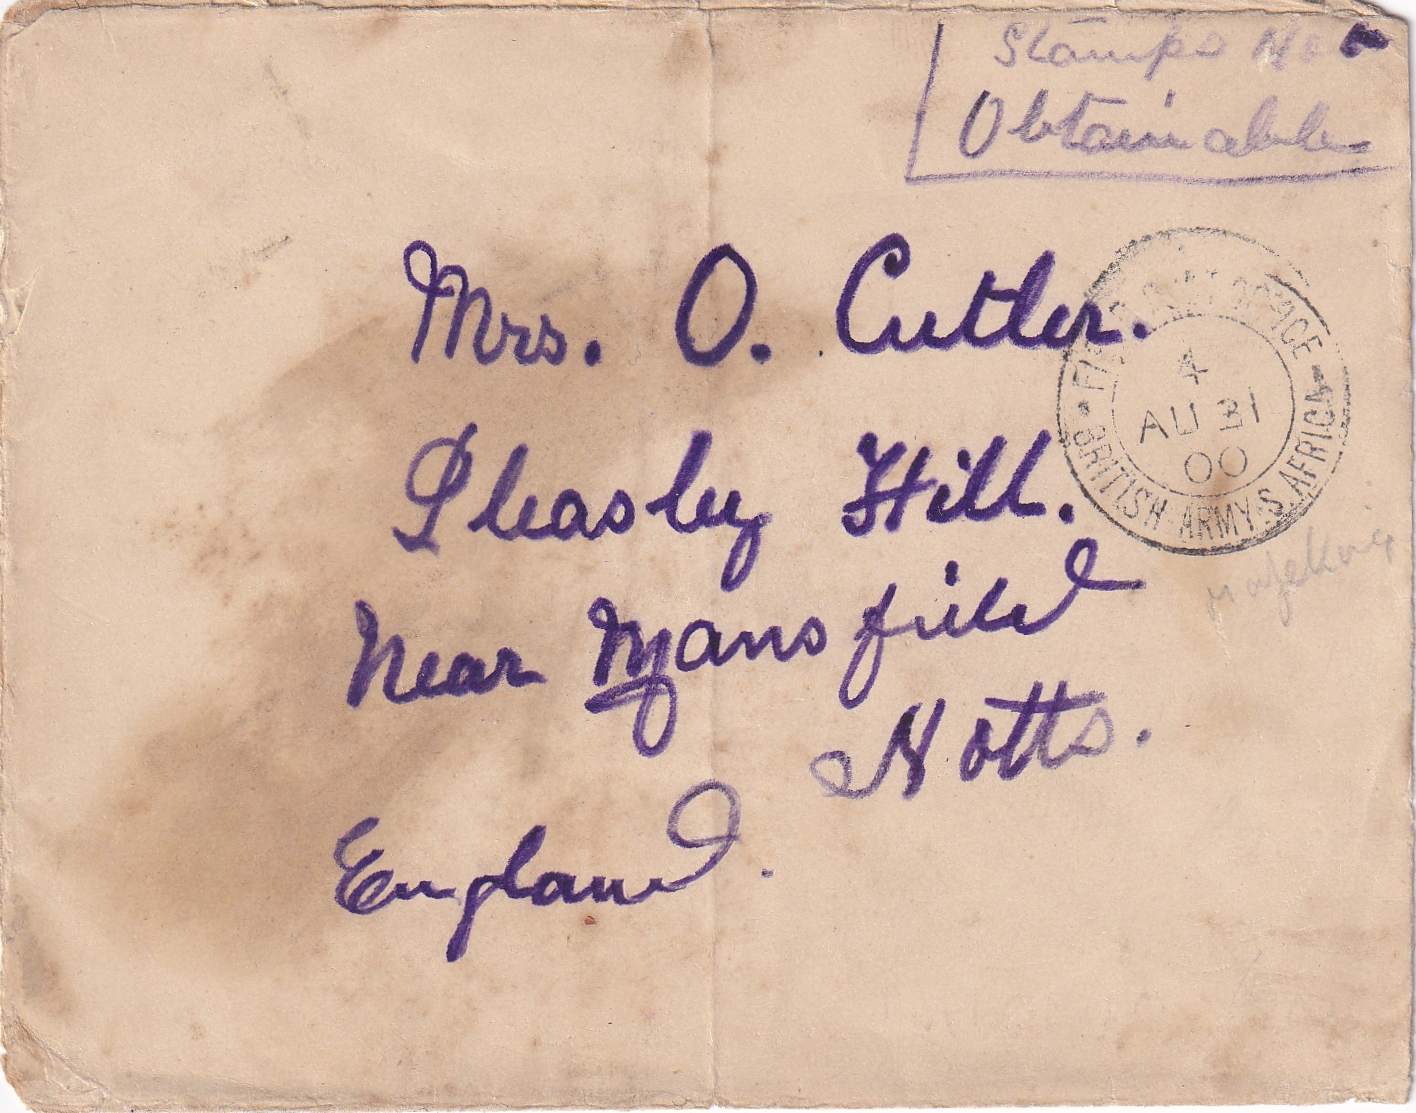 Stamps Not
Obtainable
Mrs. O. Cutler.
Pleasley Hill.
Near Mansfield
Notts.
England.
FIELD POST OFFICE
4
AU 31
00
BRITISH ARMY S. AFRICA